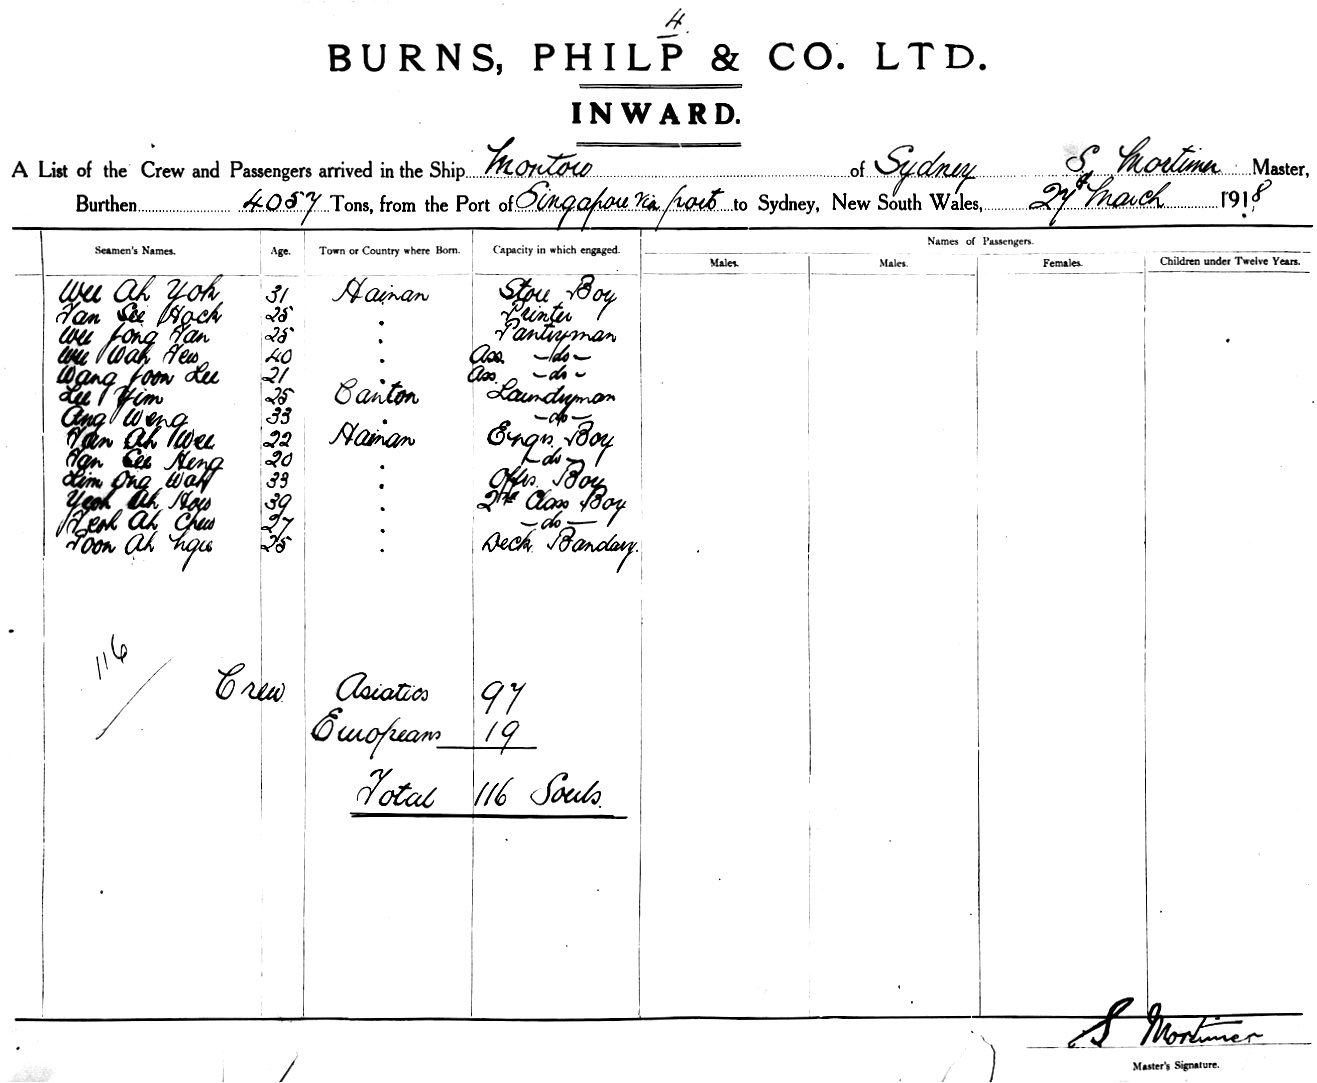 4.
BURNS, PHILP & CO. LTD.
INWARD.
A List of the Crew and Passengers arrived in the Ship Montoro of Sydney S. Mortimer Master,
Burthen 4057 Tons, from the Port of Singapore via ports to Sydney, New South Wales, 27th March 1918
Names of Passengers.
Seamen's Names. Age. Town or Country where Born. Capacity in which engaged. Males. Males. Females. Children under Twelve Years.
Wee Ah Yoh 31 Hainan Store Boy
Tan See Hock 25 " Printer
Wee Jong Tan 25 " Pantryman
Wee Wah Tew 40 " Ass. -do-
Wang Joon Lee 21 " Ass. -do-
Lee Yim 25 Canton Laundryman
Ang Weng 33 " -do-
Tan Ah Wee 22 Hainan Engrs. Boy
Tan See Heng 20 " -do-
Lim Ong Wah 33 " Offrs. Boy
Yeoh Ah How 39 " 2nd Class Boy
Yeoh Ah Chew 27 " -do-
Toon Ah 25 " Deck Bandary.
116
Crew Asiatics 97
Europeans 19
Total 116 Souls.
S Mortimer
Master's Signature.